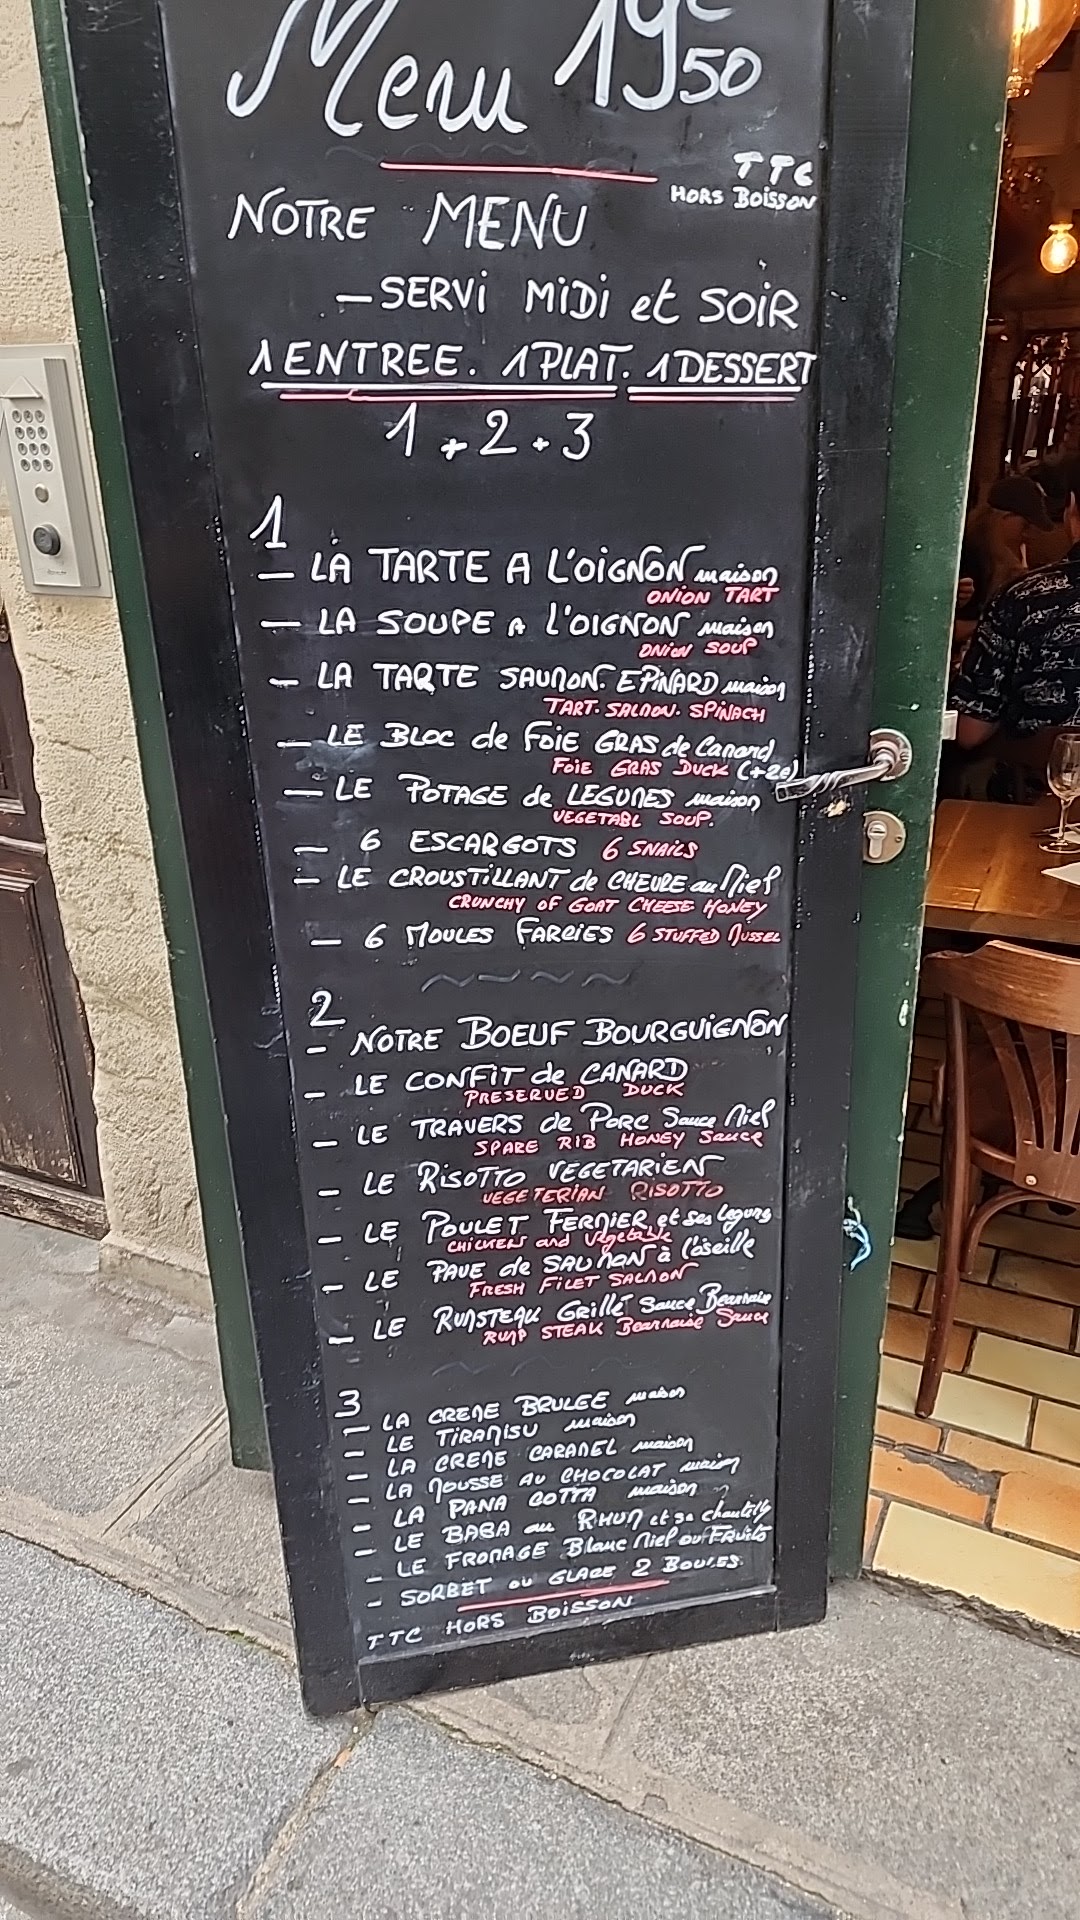 Menu 19€50
TTC
HORS BOISSON
NOTRE MENU
– SERVI MIDI et SOIR
1 ENTREE. 1 PLAT. 1 DESSERT
1 + 2 + 3
1
– LA TARTE A L'OIGNON maison
ONION TART
– LA SOUPE A L'OIGNON maison
ONION SOUP
– LA TARTE SAUMON. EPINARD maison
TART. SALMON. SPINACH
– LE BLOC de FOIE GRAS de Canard
FOIE GRAS DUCK (+2€)
– LE POTAGE de LEGUMES maison
VEGETABL SOUP.
– 6 ESCARGOTS 6 SNAILS
– LE CROUSTILLANT de CHEVRE au Miel
CRUNCHY OF GOAT CHEESE HONEY
– 6 MOULES FARCIES 6 STUFFED MUSSEL
2
– NOTRE BOEUF BOURGUIGNON
– LE CONFIT de CANARD
PRESERVED DUCK
– LE TRAVERS de PORC Sauce Miel
SPARE RIB HONEY Sauce
– LE RISOTTO VEGETARIEN
VEGETERIAN RISOTTO
– LE POULET FERMIER et ses legums
CHICKEN and vegetable
– LE PAVE de SAUMON à l'oseille
FRESH FILET SALMON
– LE RUMSTEAK Grillé Sauce Bearnaise
RUMP STEAK Bearnaise Sauce
3
– LA CREME BRULEE maison
– LE TIRAMISU maison
– LA CREME CARAMEL maison
– LA MOUSSE AU CHOCOLAT maison
– LA PANA COTTA maison
– LE BABA au RHUM et sa chantilly
– LE FROMAGE Blanc Miel ou Fruits
– SORBET ou GLACE 2 BOULES.
TTC HORS BOISSON